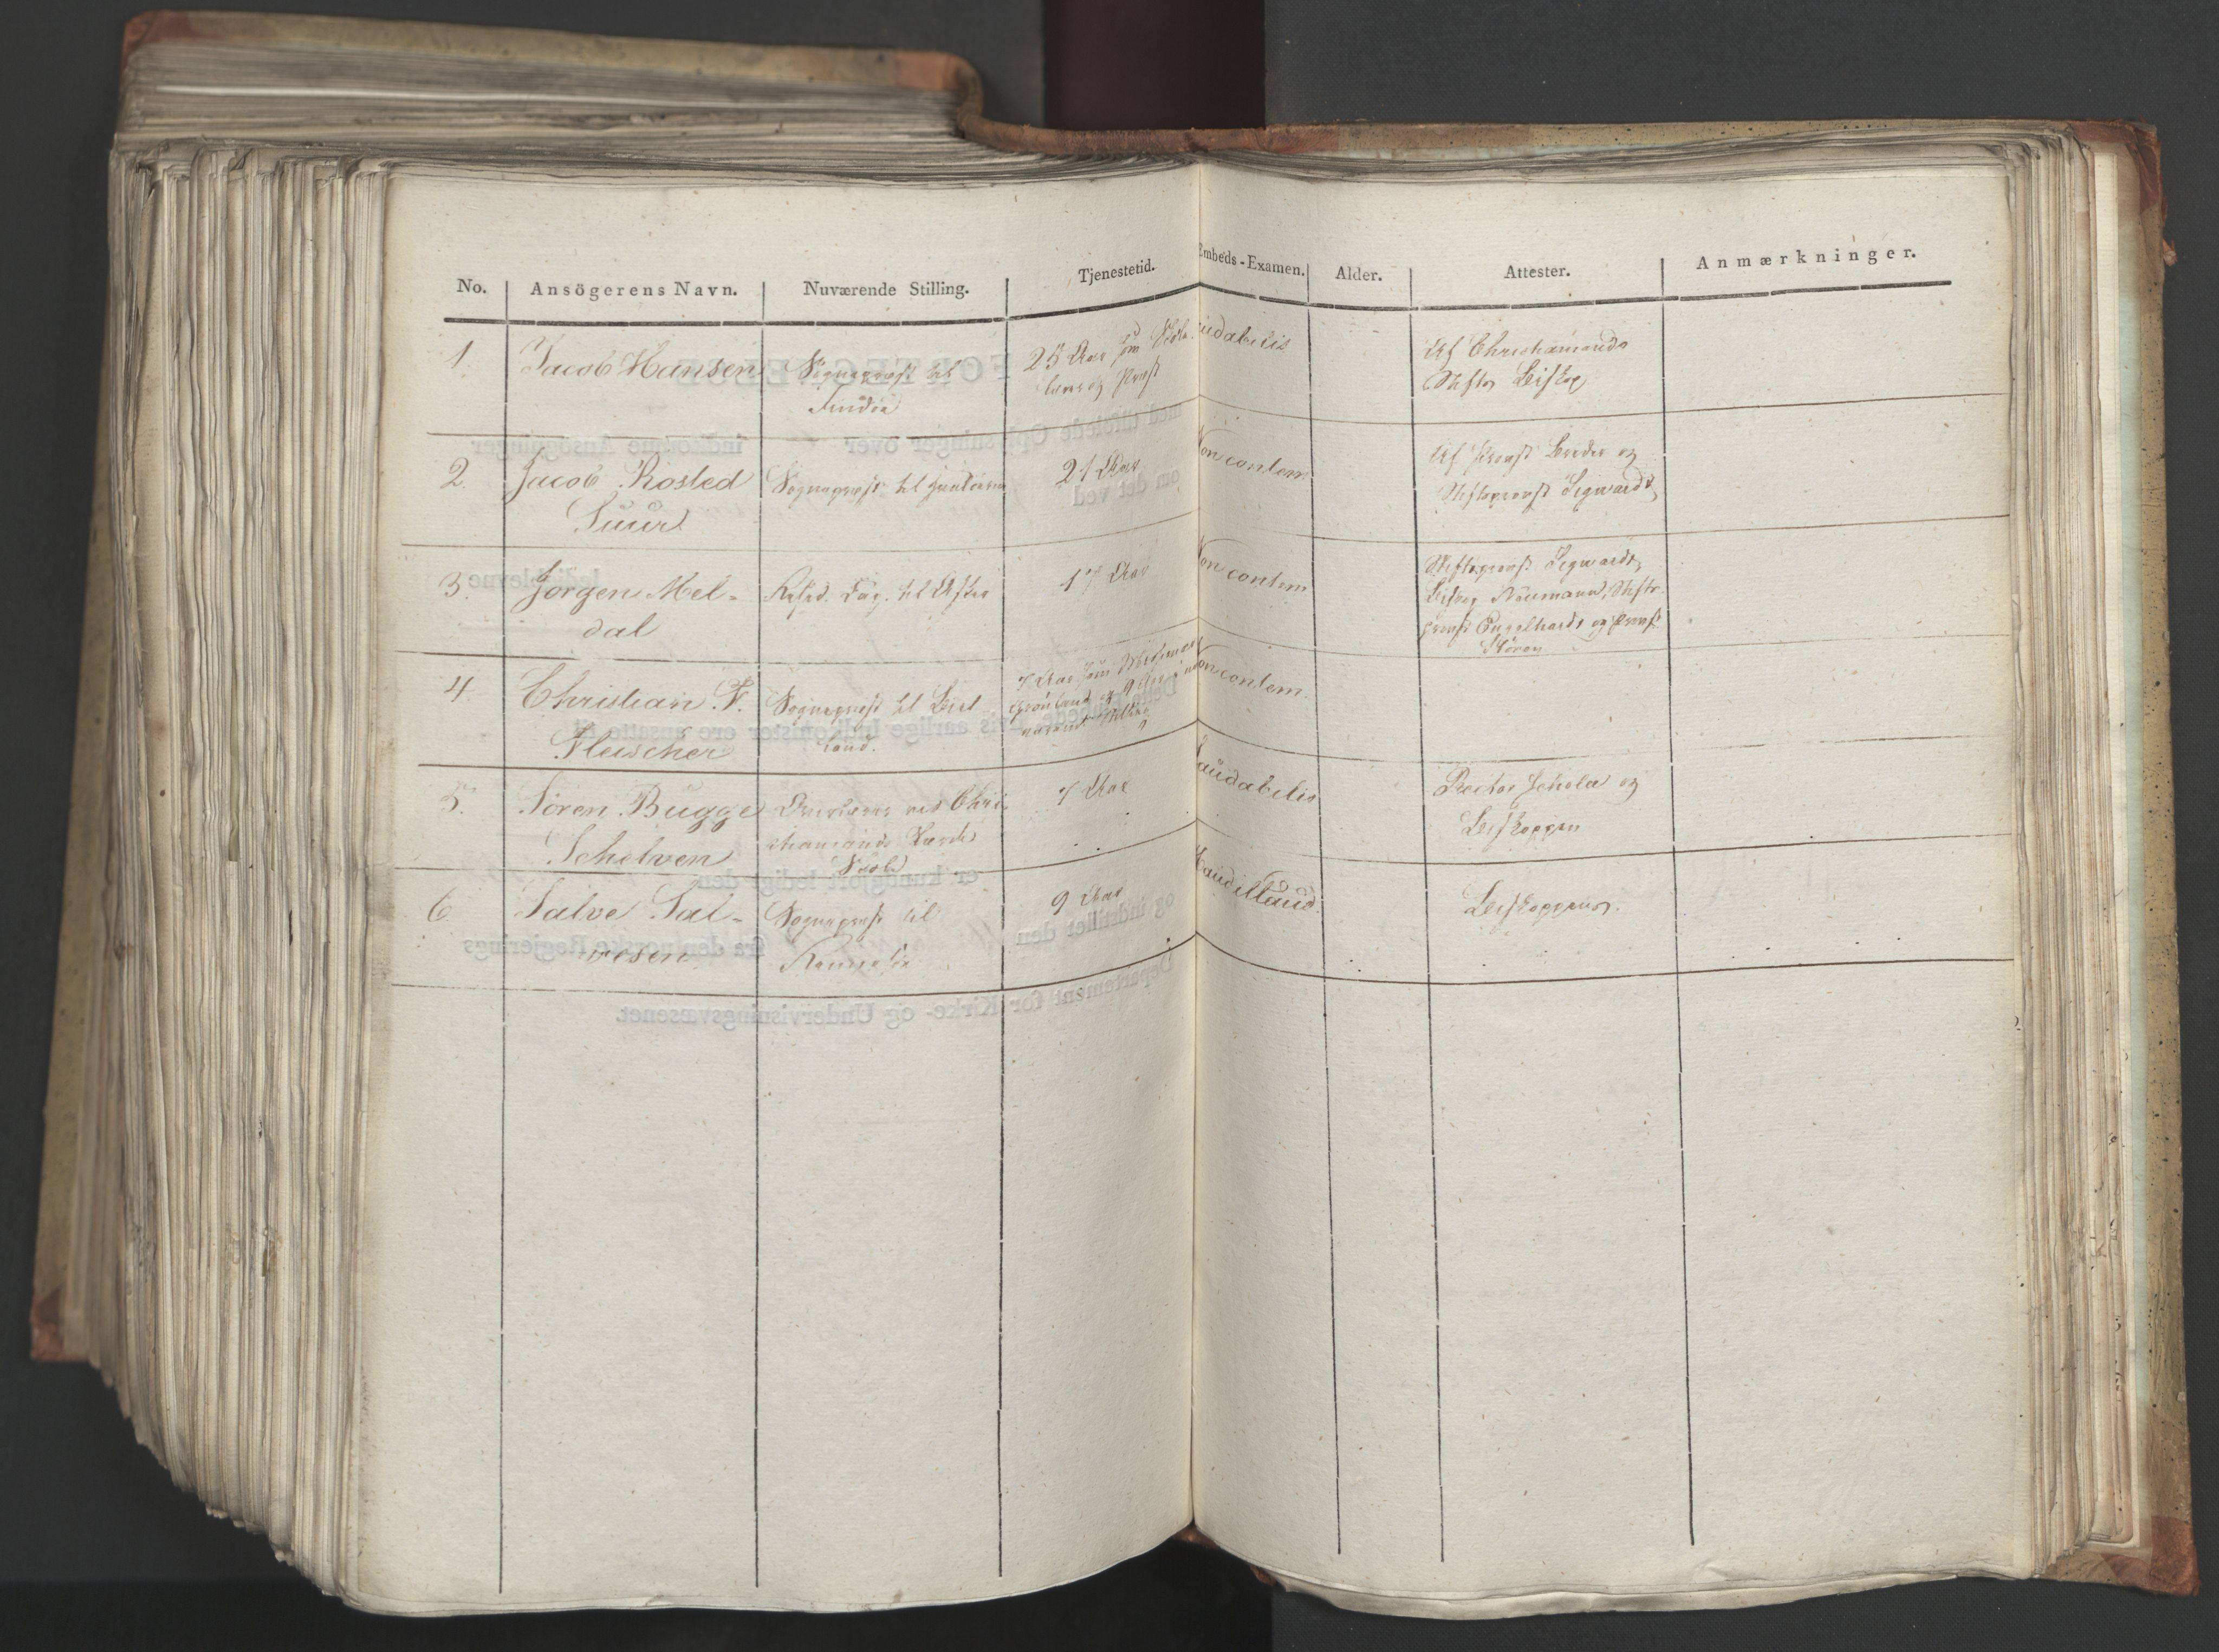 No.
Ansögerens Navn.
Nuværende Stilling.
Tjenestetid.
Embeds-Examen.
Alder.
Attester.
Anmærkninger.
1.
Jacob Hansen
Sognepræst til
Findöe
25 Aar som
og Præst
udabilis
Af Christiansands
Stifts Biskop
2.
Jacob Rosted
Suur
Sognepræst til
21 Aar
Non contem.
Af Provst og
Stiftsprovst Sigwardt,
3.
Jörgen Mel-
dal
Resid. Cap. til
17 Aar
Non contem
Stiftsprovst Sigwardt,
Biskop Neumann, Stifts-
provst Engelhardt og Provst
Stören
4
Christian F.
Fleischer
Sognepræst til
land.
7 Aar som
Grönland og 9 Aar i nu
værende Stilling
non contem.
5.
Sören Bugge
Schelven
ved Chri-
stiansands Lærde
Skole
7 Aar
Laudabilis
Rector Schola og
Biskoppen
6
Salve Sal-
vesen
Sognepræst til
9 Aar
Laud et laud.
Biskoppen.